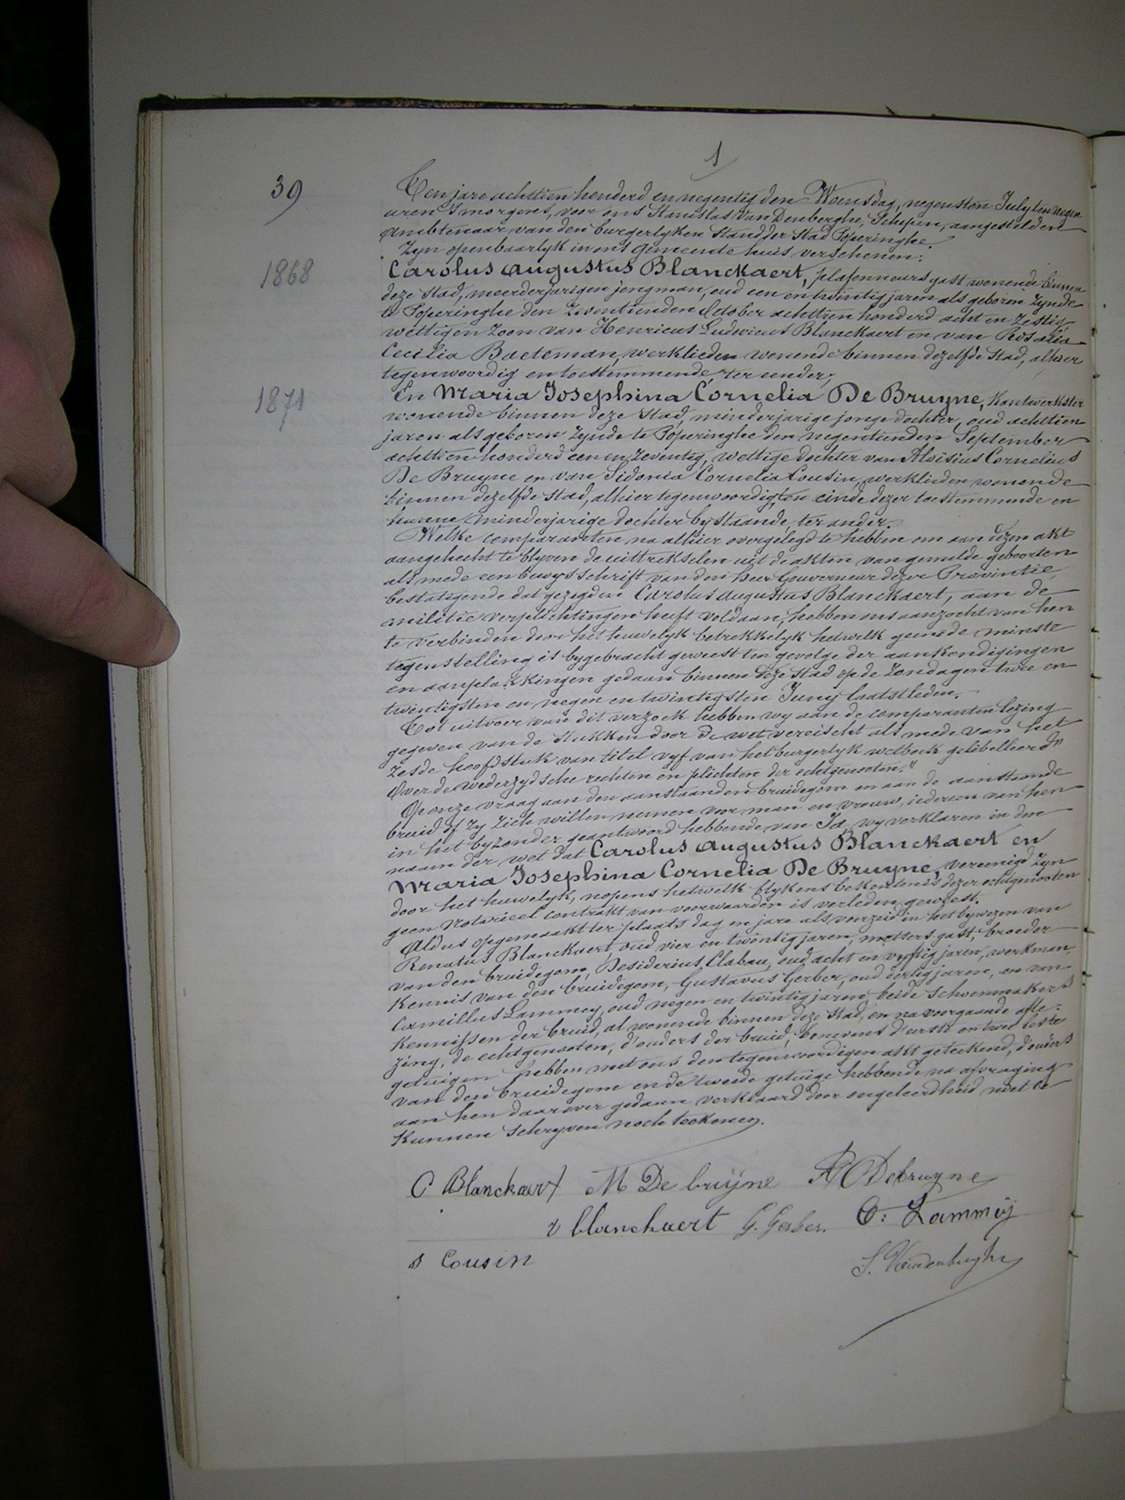 1
39
Ten jare achttien honderd en negentig den Woensdag, negensten July ten negen
uren 's morgens, voor ons Stanislas Van Denberghe, Schepen, aangestelden
Ambtenaar van den burgerlyken stand der stad Poperinghe.
Zyn openbaarlyk in ons gemeente huis verschenen:
1868
Carolus Augustus Blanckaert, plafonneurs gast wonende binnen
deze stad, meerderjarigen jongman, oud een en twintig jaren als geboren zynde
te Poperinghe den twintienden October achttien honderd acht en zestig
wettigen zoon van Henricus Ludovicus Blanckaert en van Rosalia
Cecilia Baeteman, werklieden wonende binnen dezelfde stad, alhier
tegenwoordig en toestemmende ter eender;
1871
En Maria Josephina Cornelia De Bruyne, kantwerkster
wonende binnen deze stad, minderjarige jonge dochter, oud achttien
jaren als geboren zynde te Poperinghe den negentienden September
achttien honderd een en zeventig, wettige dochter van Aloisius Cornelius
De Bruyne en van Sidonia Cornelia Cousin, werklieden wonende
binnen dezelfde stad, alhier tegenwoordig ten einde dezer toestemmende en
hunne minderjarige dochter bystaande, ter ander.
Welke comparanten na alhier overgelegd te hebben om aan dezen akt
aangehecht te blyven de uittrekselen uit de akten van gemelde geboorten
als mede een bewysschrift van den heer Gouverneur dezer Provintie,
bestatigende dat gezegden Carolus Augustus Blanckaert, aan de
militie verplichtingen heeft voldaan, hebben ons aanzocht van hen
te verbinden door het huwelyk betrekkelyk hetwelk geende minste
tegenstelling is bygebracht geweest ten gevolge der aankondigingen
en aanplakkingen gedaan binnen deze stad op de zondagen twee en
twintigsten en negen en twintigsten Juny laatstleden.
Tot uitvoer van dit verzoek hebben wy aan de comparanten lezing
gegeven van de stukken door de wet vereischt als mede van het
zesde hoofdstuk van titel vyf van het burgerlyk wetboek gelibelleerd "
Over de wederzydsche rechten en plichten der echtgenooten."
Op onze vraag aan den aanstaanden bruidegom en aan de aanstaande
bruid of zy zich willen nemen voor man en vrouw, iedereen van hen
in het byzonder geantwoord hebbende van Ja, wy verklaren in den
naam der wet dat Carolus Augustus Blanckaert en
Maria Josephina Cornelia De Bruyne, vereenigd zyn
door het huwelyk, nopens hetwelk blykens bekentenis dezer echtgenooten
geen notarieel contrakt van voorwaarden is verleden geweest.
Aldus opgemaakt ter plaats dag en jare als voorzeid in het bywezen van
Renatus Blanckaert, oud vier en twintig jaren, metsers gast, broeder
van den bruidegom, Desiderius Clabau, oud acht en vyftig jaren, werkman,
kennis van den bruidegom, Gustavus Gerber, oud dertig jaren, en van
Camillus Lammey, oud negen en twintig jaren, beide schoenmakers
kennissen der bruid, al wonende binnen deze stad, en na voorgaande afle-
zing, de echtgenooten, d'ouders der bruid, benevens d'eerste en twee leste
getuigen hebben met ons den tegenwoordigen akt geteekend, d'ouders
van den bruidegom en de tweede getuige hebbende na afvraging
aan hen daarover gedaan verklaard door ongeleerdheid niet te
kunnen schryven noch teekenen.
C Blanckaert M De bruijne A C Debruyne
r blanckaert G. Gerber. C: Lammeij
s Cousin S. Vandenberghe